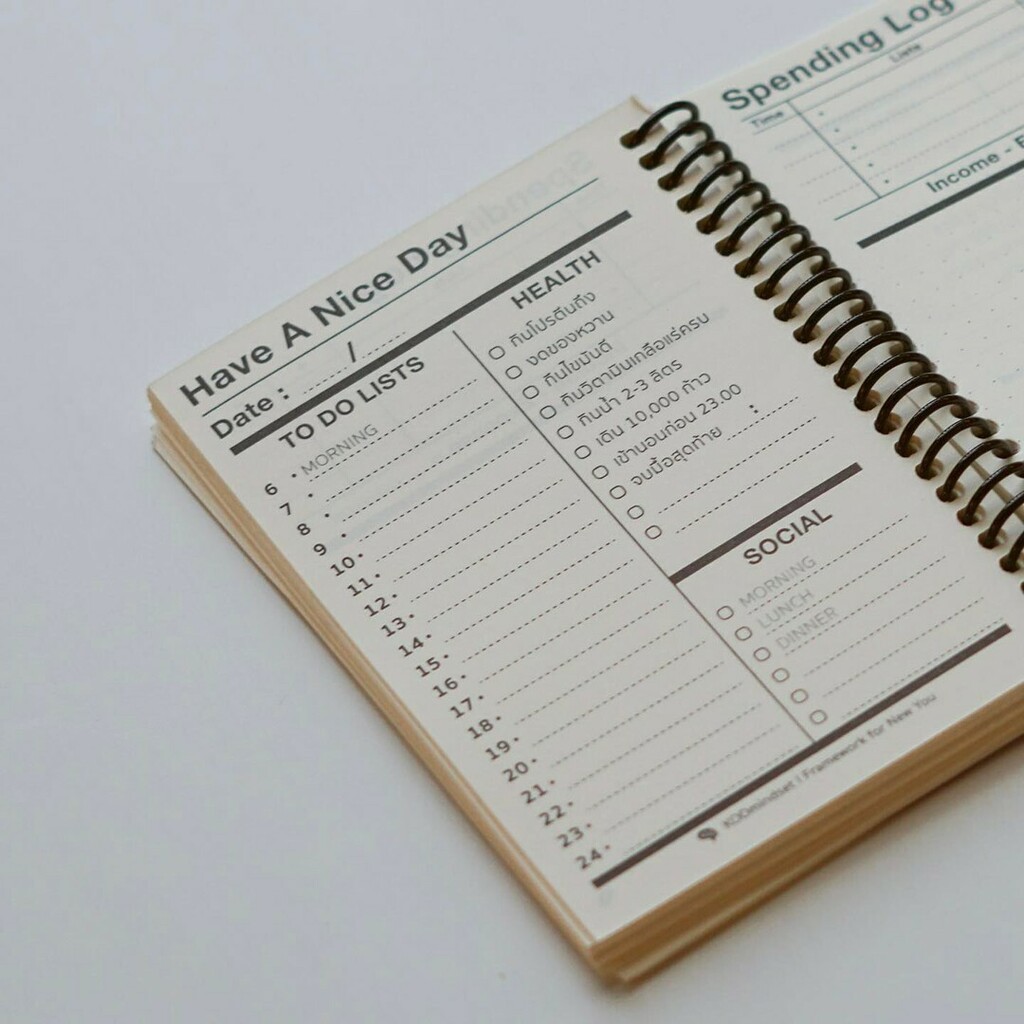 Have A Nice Day
Date : ...... / ......
TO DO LISTS
6 • MORNING
7 •
8 •
9 •
10 •
11 •
12 •
13 •
14 •
15 •
16 •
17 •
18 •
19 •
20 •
21 •
22 •
23 •
24 •
HEALTH
กินโปรตีนถึง
งดของหวาน
กินไขมันดี
กินวิตามินเกลือแร่ครบ
กินน้ำ 2-3 ลิตร
เดิน 10,000 ก้าว
เข้านอนก่อน 23.00
จบมื้อสุดท้าย ...... : ......
SOCIAL
MORNING
LUNCH
DINNER
KOOmindset | Framework for New You
Spending Log
Time
Liste
Income -